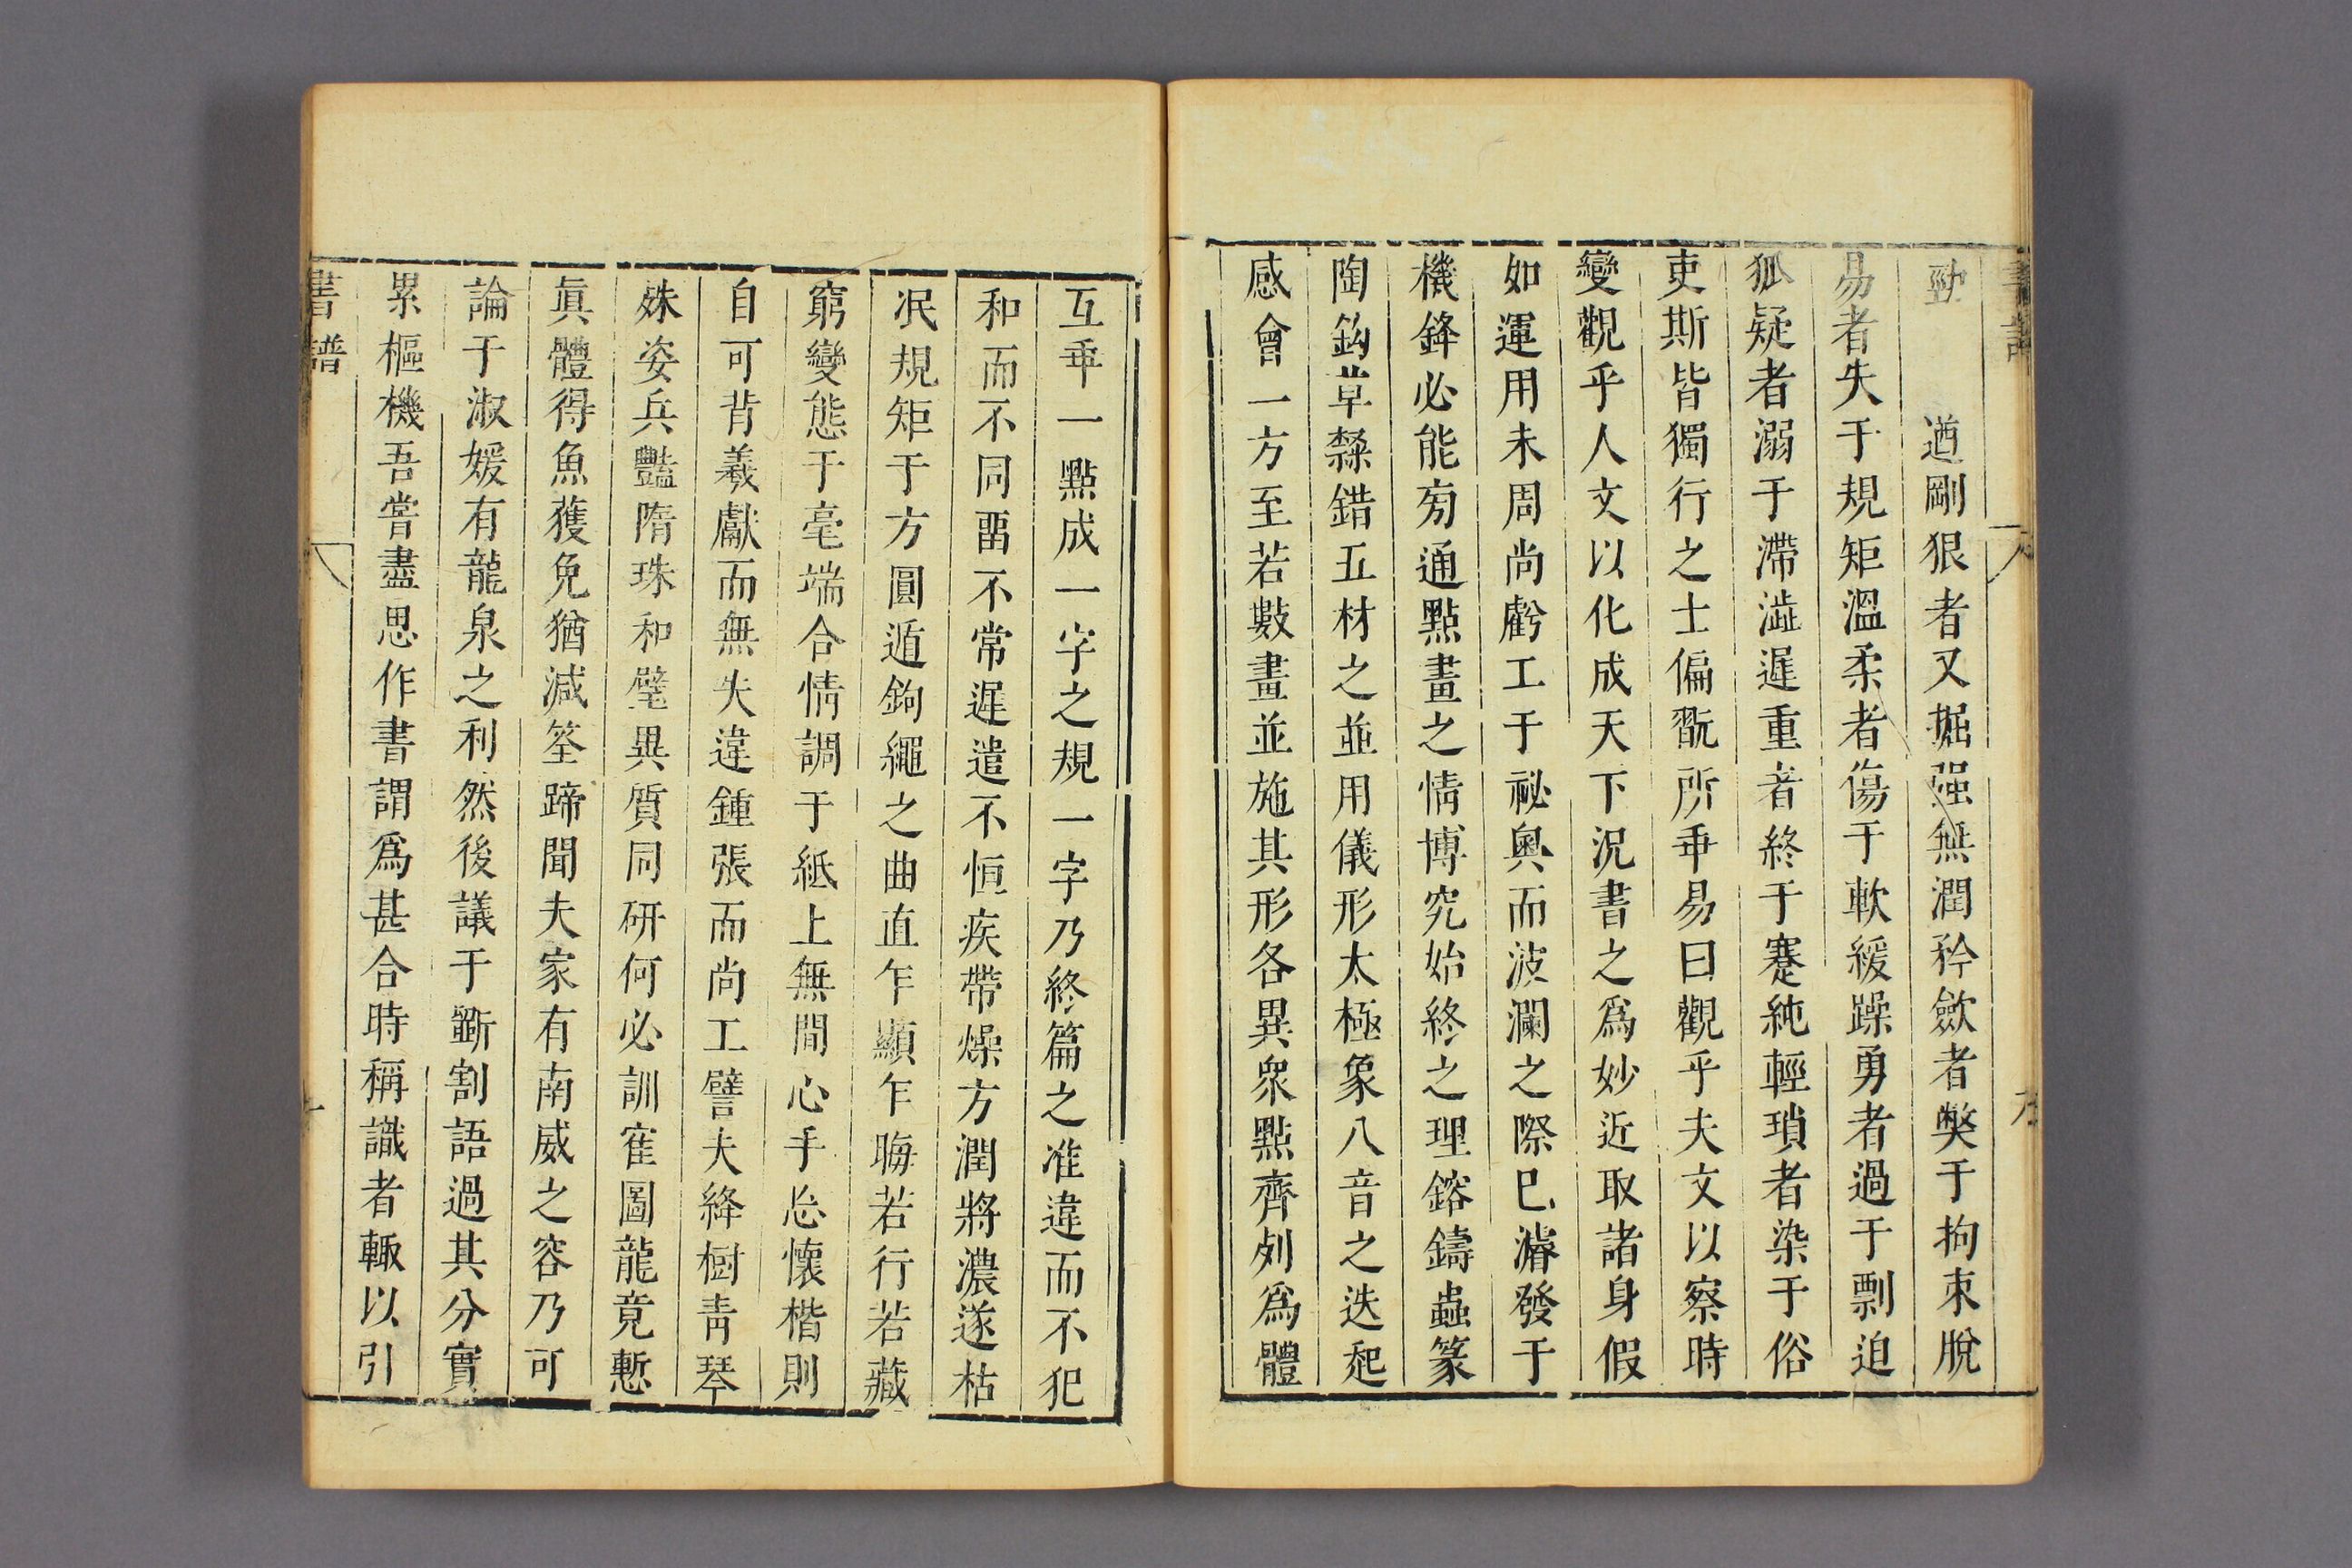 書譜
勁　　遒剛狠者又掘强無潤矜歛者獘于拘束脫
易者失于規矩溫柔者傷于軟緩躁勇者過于剽迫
狐疑者溺于滯澁遲重者終于蹇純輕瑣者染于俗
吏斯皆獨行之士偏翫所乖易曰觀乎夫文以察時
變觀乎人文以化成天下況書之爲妙近取諸身假
如運用未周尚虧工于祕奧而波瀾之際巳濬發于
機鋒必能㫄通點畫之情博究始終之理鎔鑄蟲篆
陶鈎草𣜩錯五材之並用儀形太極象八音之迭起
感會一方至若數畫並施其形各異衆點齊列爲體
互乖一點成一字之規一字乃終篇之准違而不犯
和而不同畱不常遲遣不恒疾帶燥方潤將濃遂枯
泯規矩于方圓遁鉤繩之曲直乍顯乍晦若行若藏
窮變態于亳端合情調于紙上無間心手忘懷楷則
自可背羲獻而無失違鍾張而尚工譬夫絳樹靑琴
姝姿兵豔隋珠和璧異質同硏何必訓寉圖龍竟慙
眞體得魚獲免猶減筌蹄聞夫家有南威之容乃可
論于淑媛有龍泉之利然後議于斷割語過其分實
累樞機吾嘗盡思作書謂爲甚合時稱識者輙以引
書譜